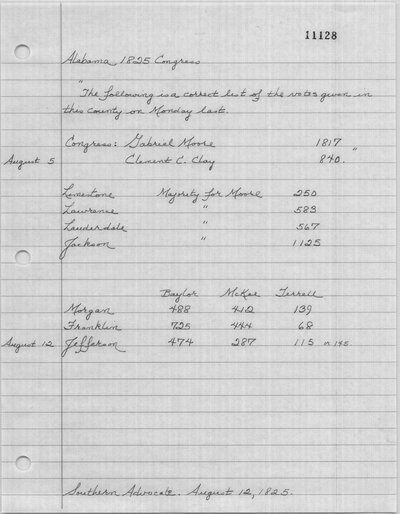 11128
Alabama, 1825 Congress
"The following is a correct list of the votes given in
this county on Monday last.
Congress: Gabriel Moore 1817
August 5 Clement C. Clay 840. "
Limestone Majority for Moore 250
Lawrence " 583
Lauderdale " 567
Jackson " 1125
Baylor McKee Terrell
Morgan 488 412 139
Franklin 725 444 68
August 12 Jefferson 474 287 115 or 145.
Southern Advocate. August 12, 1825.